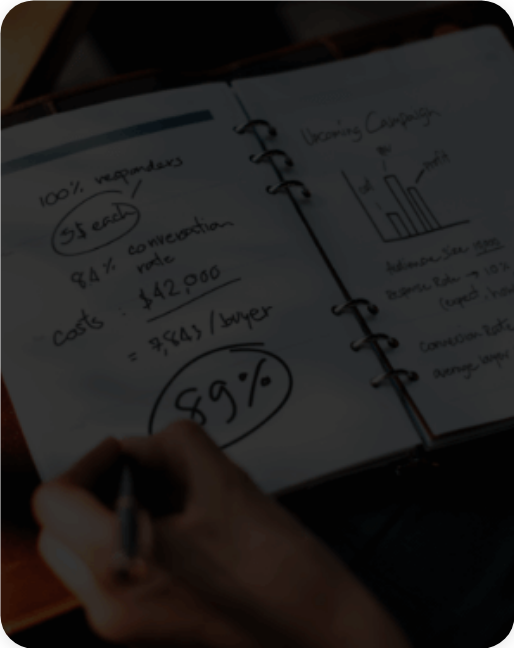 100% responders
5$ each
84% conversation
rate
costs : $42,000
= 7,843 / buyer
89%
Upcoming Campaign
cost
profit
Audience size
response Rate → 10%
(expect.
conversion Rate
average buyer